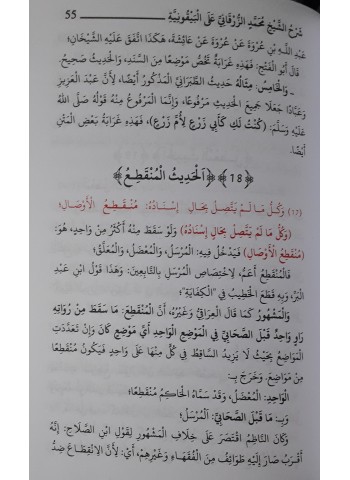 شَرْحُ الشَّيْخِ مُحَمَّدٍ الزُّرْقَانِيِّ عَلَى الْبَيْقُونِيَّةِ 55
عَبْدِ اللَّـهِ بْنِ عُرْوَةَ عَنْ عُرْوَةَ عَنْ عَائِشَةَ، هَكَذَا اتَّفَقَ عَلَيْهِ الشَّيْخَانِ؛
قَالَ أَبُو الْفَتْحِ: فَهَذِهِ غَرَابَةٌ تَخُصُّ مَوْضِعًا مِنَ السَّنَدِ، وَالْحَدِيثُ صَحِيحٌ.
وَالْخَامِسُ: مِثَالُهُ حَدِيثُ الطَّبَرَانِيِّ الْمَذْكُورُ أَيْضًا، لِأَنَّ عَبْدَ الْعَزِيزِ
وَعَبَّادًا جَعَلَا جَمِيعَ الْحَدِيثِ مَرْفُوعًا، وَإِنَّمَا الْمَرْفُوعُ مِنْهُ قَوْلُهُ صَلَّى اللهُ
عَلَيْهِ وَسَلَّمَ: (كُنْتُ لَكِ كَأَبِي زَرْعٍ لِأُمِّ زَرْعٍ)، فَهَذِهِ غَرَابَةُ بَعْضِ الْمَتْنِ
أَيْضًا.
﴿18﴾ ﴿اَلْحَدِيثُ الْمُنْقَطِعُ﴾
(17) وَكُلُّ مَا لَمْ يَتَّصِلْ بِحَالِ إِسْنَادُهُ: مُنْقَطِعُ الْأَوْصَالِ؛
(وَكُلُّ مَا لَمْ يَتَّصِلْ بِحَالِ إِسْنَادُهُ) وَلَوْ سَقَطَ مِنْهُ أَكْثَرُ مِنْ وَاحِدٍ، هُوَ:
(مُنْقَطِعُ الْأَوْصَالِ) فَيَدْخُلُ فِيهِ: الْمُرْسَلُ، وَالْمُعْضَلُ، وَالْمُعَلَّقُ؛
فَالْمُنْقَطِعُ أَعَمُّ، لِاخْتِصَاصِ الْمُرْسَلِ بِالتَّابِعِينَ، وَهَذَا قَوْلُ ابْنِ عَبْدِ
الْبَرِّ، وَبِهِ قَطَعَ الْخَطِيبُ فِي "الْكِفَايَةِ"؛
وَالْمَشْهُورُ كَمَا قَالَ الْعِرَاقِيُّ وَغَيْرُهُ، أَنَّ الْمُنْقَطِعَ: مَا سَقَطَ مِنْ رُوَاتِهِ
رَاوٍ وَاحِدٌ قَبْلَ الصَّحَابِيِّ فِي الْمَوْضِعِ الْوَاحِدِ أَيِّ مَوْضِعٍ كَانَ وَإِنْ تَعَدَّدَتِ
الْمَوَاضِعُ بِحَيْثُ لَا يَزِيدُ السَّاقِطُ فِي كُلٍّ مِنْهَا عَلَى وَاحِدٍ فَيَكُونُ مُنْقَطِعًا
مِنْ مَوَاضِعَ. وَخَرَجَ بِـ:
الْوَاحِدِ: الْمُعْضَلُ، وَقَدْ سَمَّاهُ الْحَاكِمُ مُنْقَطِعًا؛
وَبِـ: مَا قَبْلَ الصَّحَابِيِّ: اَلْمُرْسَلُ؛
وَكَأَنَّ النَّاظِمَ اقْتَصَرَ عَلَى خِلَافِ الْمَشْهُورِ لِقَوْلِ ابْنِ الصَّلَاحِ: إِنَّهُ
أَقْرَبُ صَارَ إِلَيْهِ طَوَائِفُ مِنَ الْفُقَهَاءِ وَغَيْرِهِمْ، أَيْ: لِأَنَّ الِانْقِطَاعَ ضِدُّ